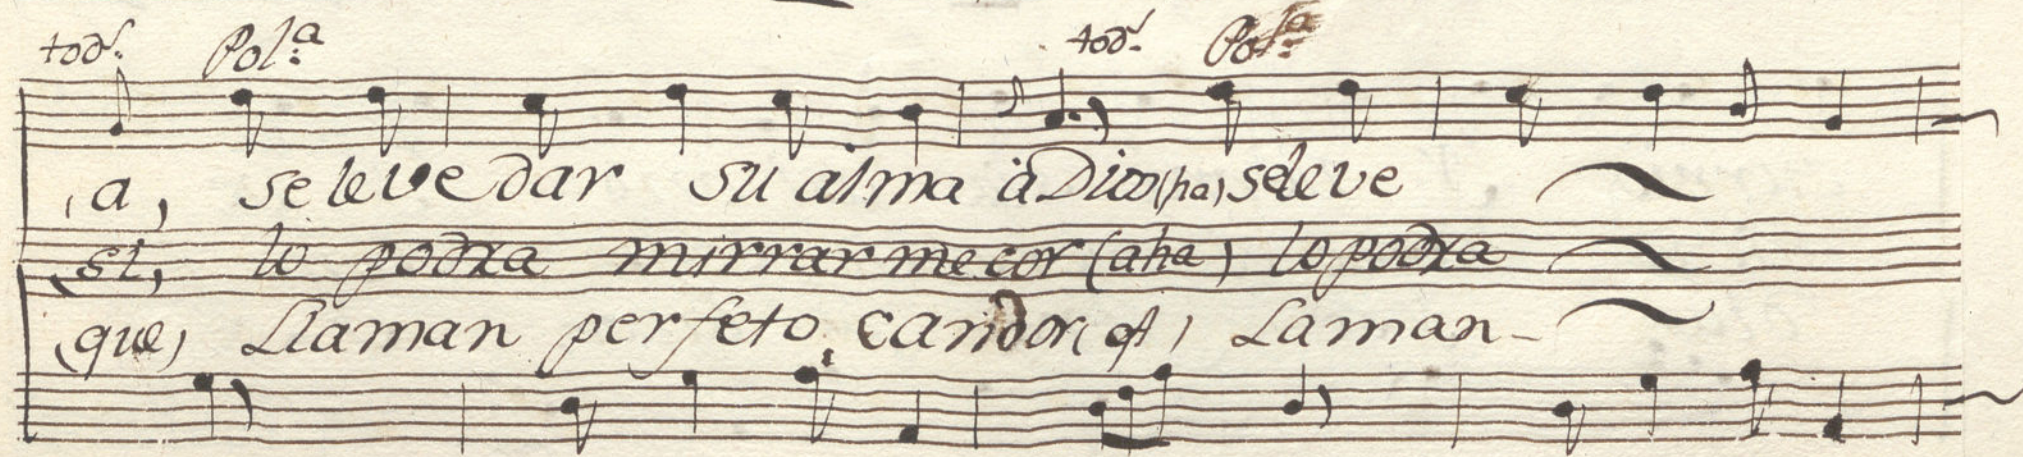 tod.s Pol.a tod.s Pol.a
(a, se le ve dar su alma à Dios (ha) se le ve
(si, lo podra mirrar mecor (aha) lo podra
(que) Llaman perfeto candor ( ) Laman-